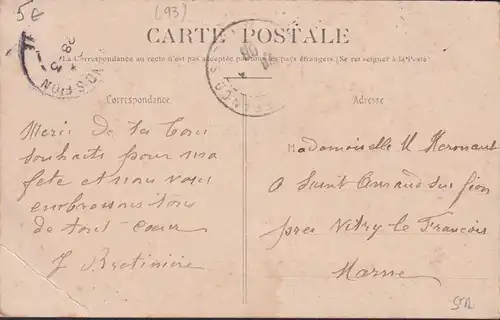 5€
(93)
CARTE POSTALE
La Correspondance au recto n'est pas acceptée par tous les pays étrangers. (Se renseigner à la Poste)
Correspondance
Adresse
Merci de tes bons
souhaits pour ma
fete et nous vous
embrassons tous
de tout cœur
Mademoiselle M
a Saint Amand sur fion
pres Vitry le Francois
Marne